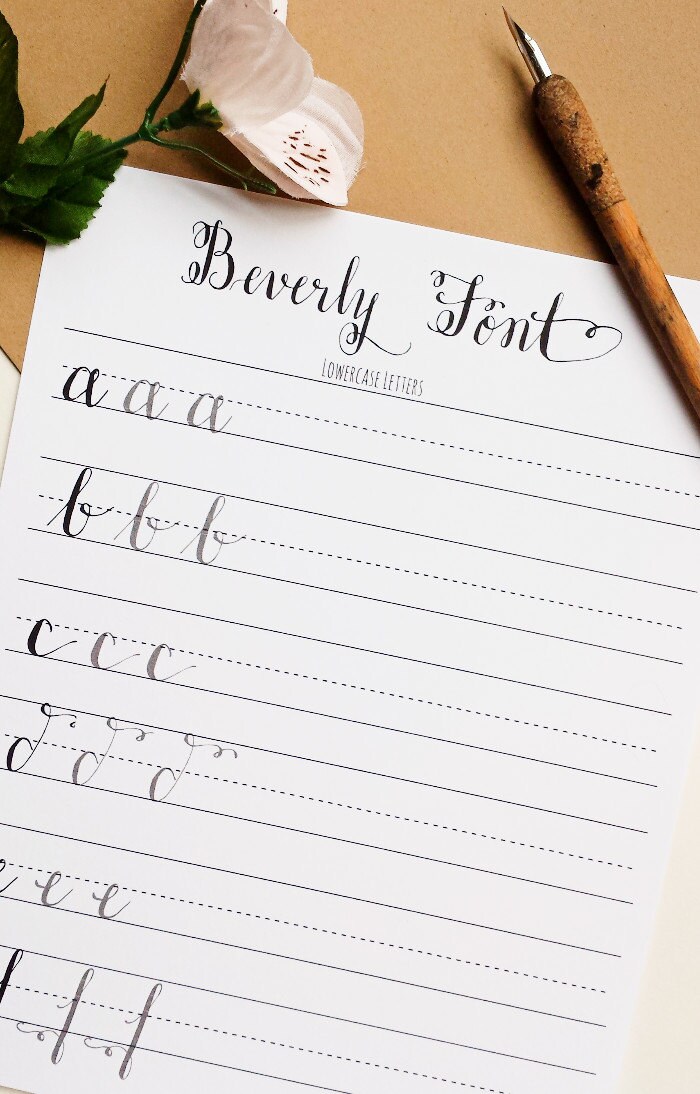 Beverly Font
Lowercase Letters
a a a
b b b
c c c
d d d
e e e
f f f